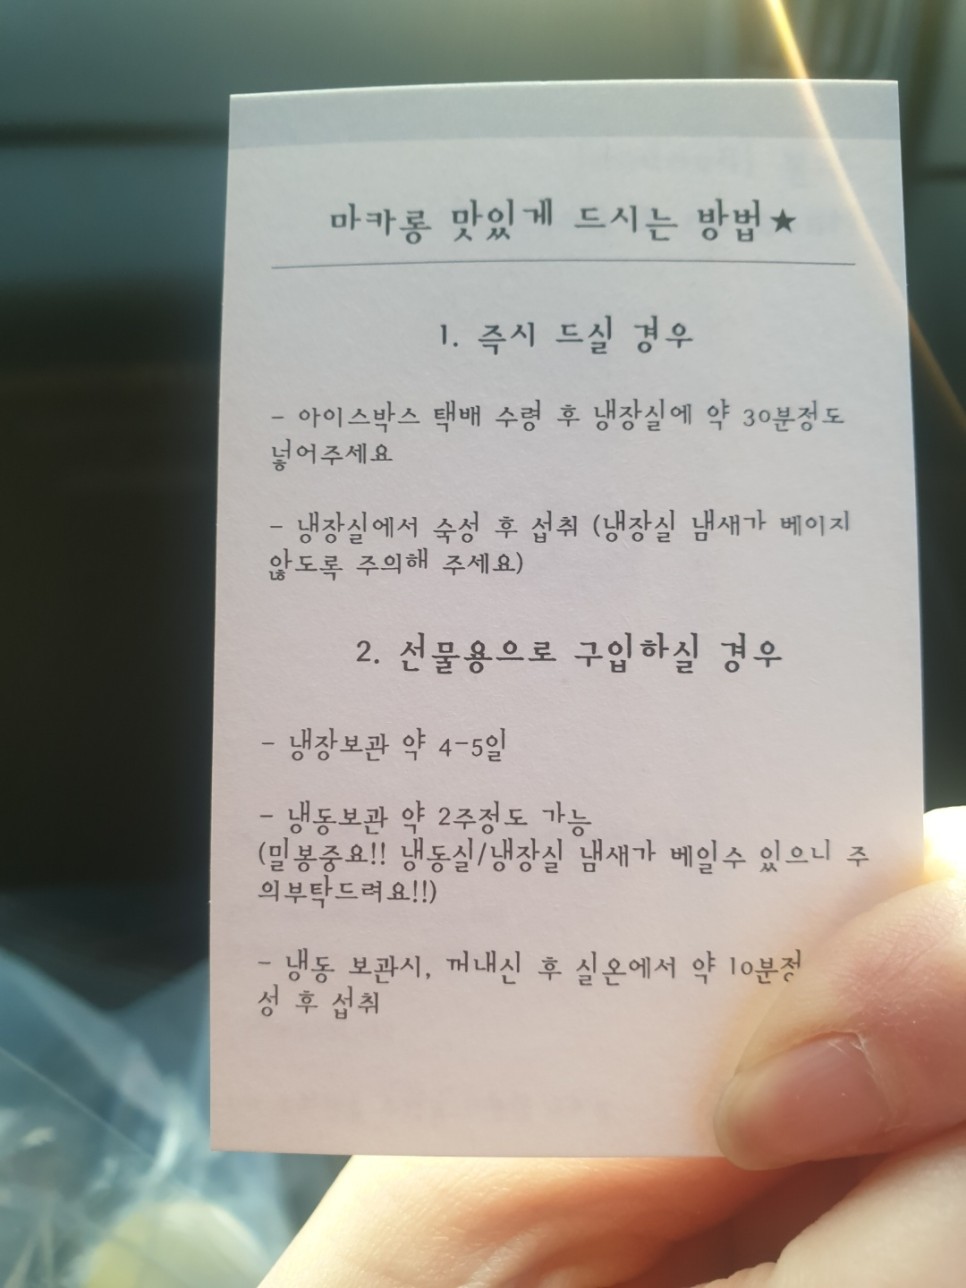 마카롱 맛있게 드시는 방법★
1. 즉시 드실 경우
- 아이스박스 택배 수령 후 냉장실에 약 30분정도
넣어주세요
- 냉장실에서 숙성 후 섭취 (냉장실 냄새가 베이지
않도록 주의해 주세요)
2. 선물용으로 구입하실 경우
- 냉장보관 약 4-5일
- 냉동보관 약 2주정도 가능
(밀봉중요!! 냉동실/냉장실 냄새가 베일수 있으니 주
의부탁드려요!!)
- 냉동 보관시, 꺼내신 후 실온에서 약 10분정
성 후 섭취